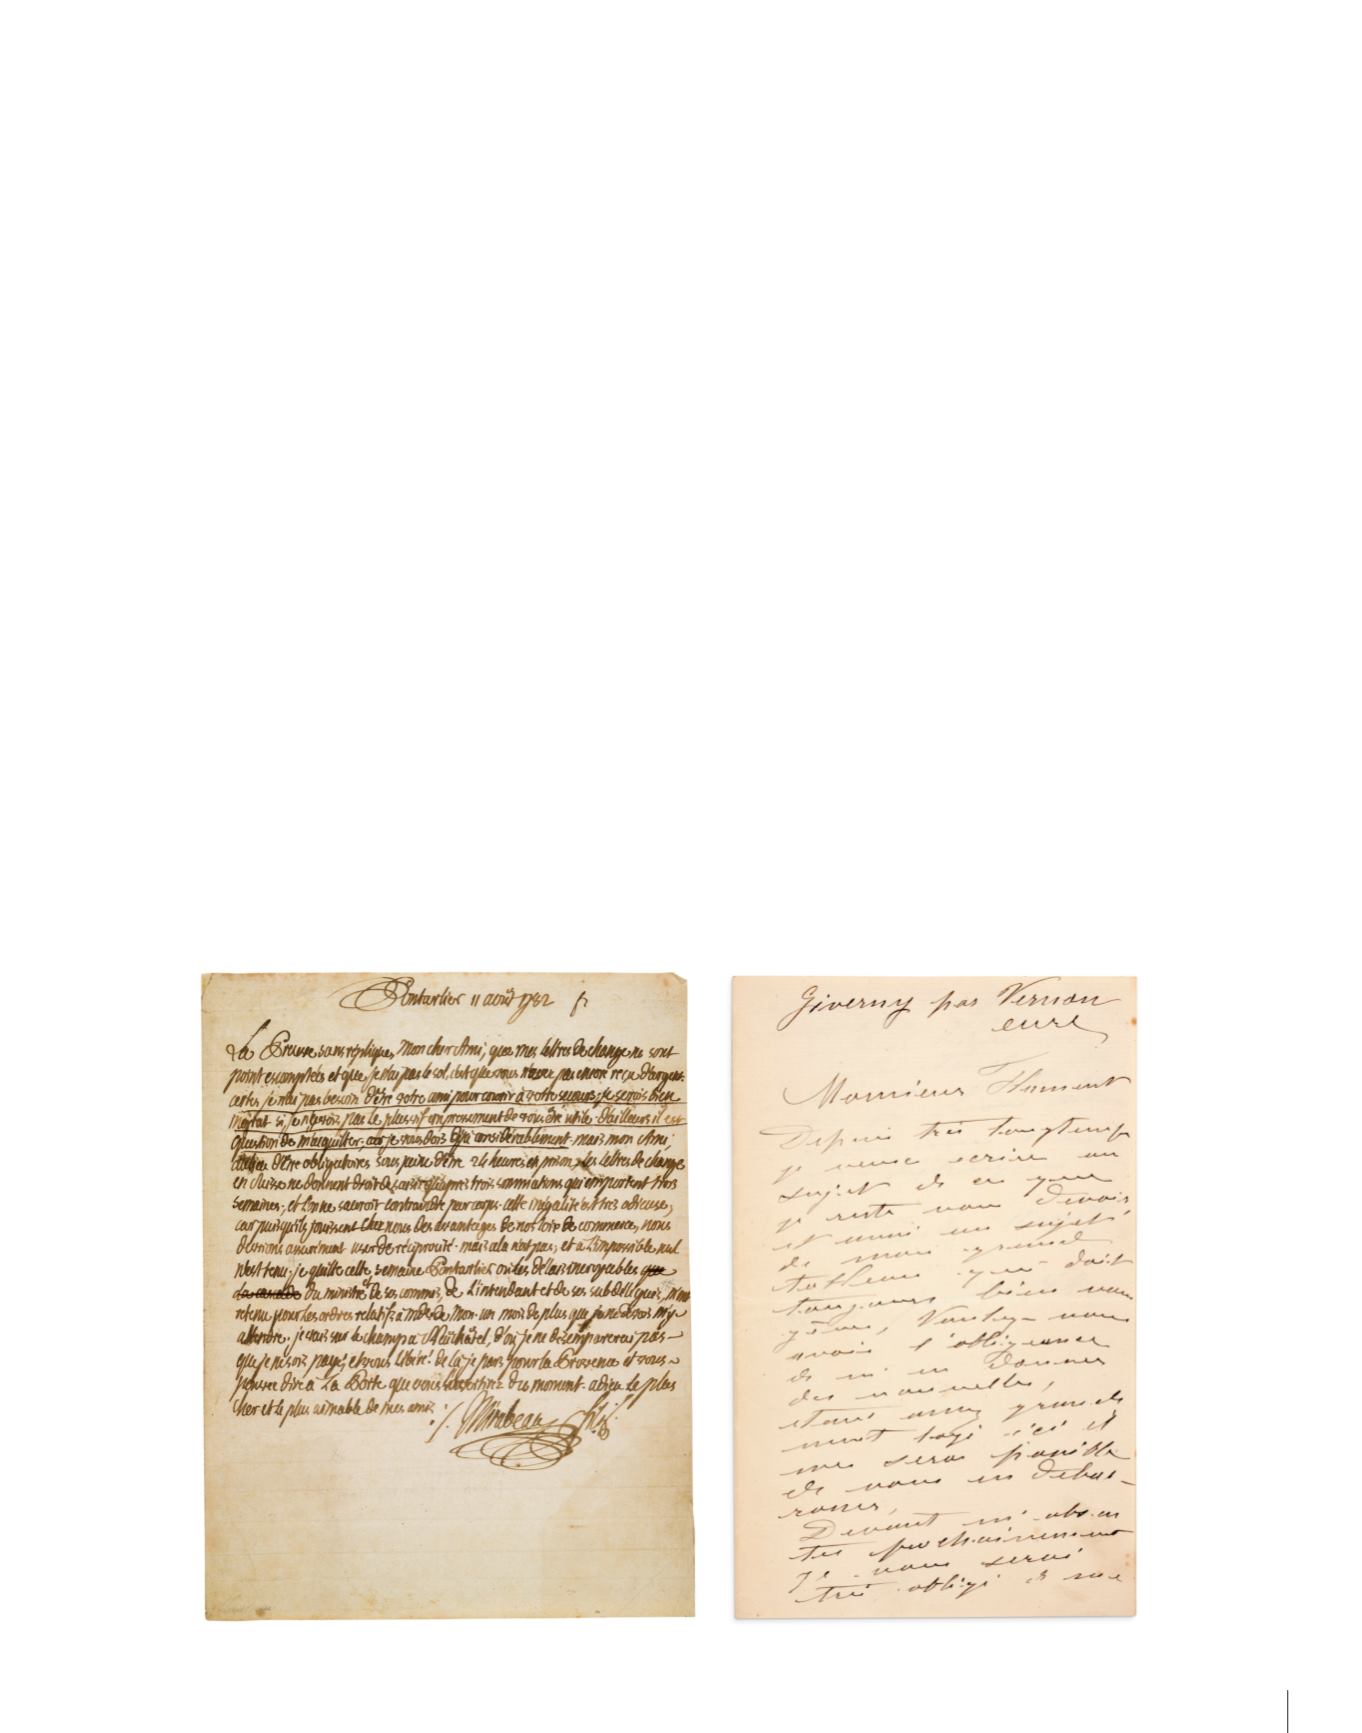 Pontarlier 11 août 1782
La Preuve sans réplique, Mon cher Ami, que mes lettres de change ne sont
point escomptées et que je n'ai pas le sol, c'est que vous n'avez pas encore reçu d'argent.
certes je n'ai pas besoin d'être votre ami pour courir à votre secours; je serois bien
ingrat si je n'avois pas le plus vif empressement de vous être utile. d'ailleurs il est
question de m'acquitter, car je vous dois déjà considérablement. mais mon Ami,
d'être obligatoires sous peine d'être 24 heures en prison, les lettres de change
en Suisse ne donnent droit de qu'après trois sommations qui emportent trois
semaines; et l'on ne sauroit contraindre par corps. cette inégalité est très odieuse,
car puisqu'ils jouissent chez nous des avantages de nos loix de commerce, nous
devrions assurément user de réciprocité. mais cela n'est pas, et à l'impossible nul
n'est tenu. je quitte cette semaine Pontarlier où les délais inexorables que
la cascade du ministre de ses commis, de l'intendant et de ses subdélégués, m'ont
retenu pour les ordres relatifs à un mois de plus que je ne devois m'y
attendre. je vais sur le champ à Neuchâtel, d'où je ne désemparerai pas
que je ne sois payé, et vous libéré. de là je pars pour la Provence et vous
pouvez dire à La Porte que vous du moment. adieu le plus
cher et le plus aimable de mes amis
Mirabeau fils
Giverny par Vernon
eure
Monsieur
Depuis très longtemps
je veux écrire au
sujet de ce que
je reste vous devoir
et aussi au sujet
de mon grand
tableau qui doit
toujours bien vous
gêner, Veuillez nous
avoir l'obligeance
de m'en donner
des nouvelles,
étant assez grande
ment logé ici et
me sera possible
de vous en débar-
rasser,
Devant m'absen
ter prochainement
je vous serai
très obligé de me